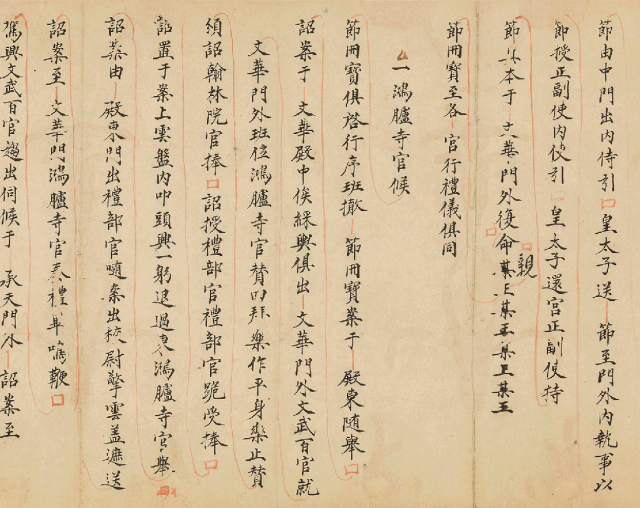 節由中門出內侍引 皇太子送 節至門外內執事以
節授正副使內使引 皇太子還宮正副使持
節具本于 文華門外復命某王某王某王某王
親
節冊寶至各 宮行禮儀俱同
一鴻臚寺官候
節冊寶俱啓行序班撤 節冊寶案于 殿東隨舉
詔案于 文華殿中俟綵輿俱出 文華門外文武百官就
文華門外班位鴻臚寺官贊四拜樂作平身樂止贊
須詔翰林院官捧 詔授禮部官禮部官跪受捧
詔置于案上雲盤內叩頭興一躬退過東鴻臚寺官舉
詔案由 殿東門出禮部官隨案出校尉擎雲盖遮送
詔案至 文華門鴻臚寺官奏禮畢鳴鞭
駕興文武百官趨出伺候于 承天門外 詔案至